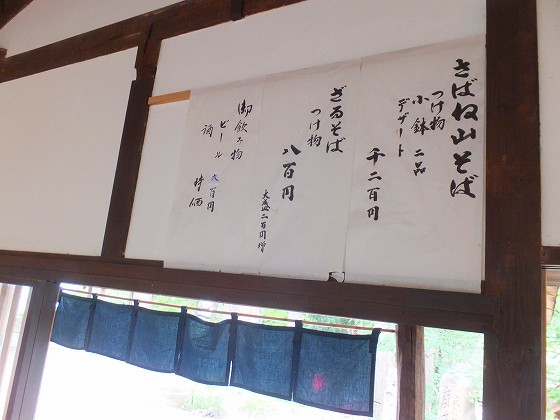 さばね山そば
つけ物
小鉢 二品
デザート
千二百円
ざるそば
つけ物
八百円
大盛二百円増
御飲み物
ビール 六百円
酒 時価